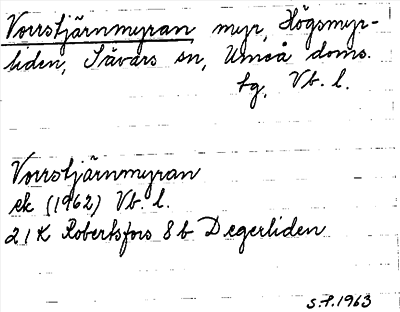 Vorrstjärnmyran myr, Högsmyr-
liden, Sävars sn, Umeå doms.
tg, Vb. l.
Vorrstjärnmyran
ek (1962) Vb. l.
21K Robertsfors 8b Degerliden
S.P. 1963